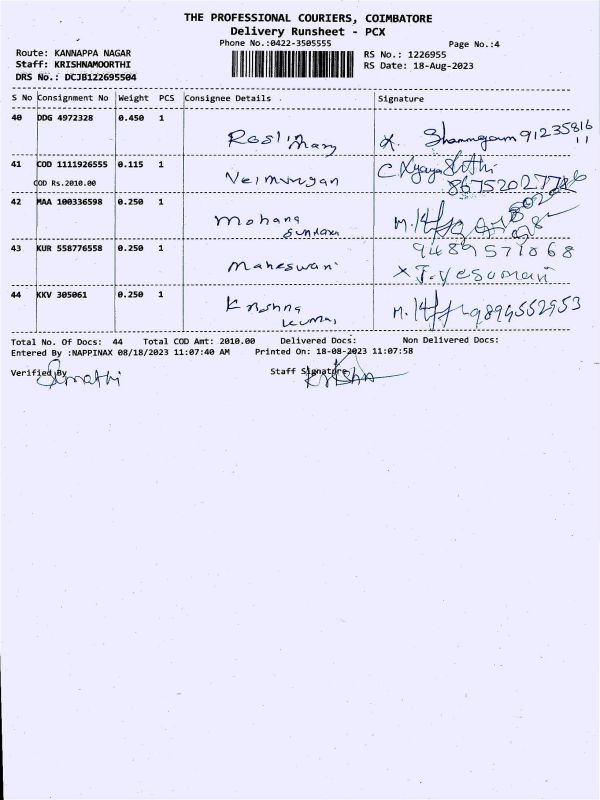 THE PROFESSIONAL COURIERS, COIMBATORE
Delivery Runsheet - PCX
Phone No.:0422-3505555
Page No.:4
Route: KANNAPPA NAGAR
Staff: KRISHNAMOORTHI
DRS No.: DCJB122695504
RS No.: 1226955
RS Date: 18-Aug-2023
S No Consignment No Weight PCS Consignee Details Signature
40 DDG 4972328 0.450 1
Roslin Mary X. Shanmgam 91235816
11
41 COD 1111926555 0.115 1
COD Rs.2010.00
Velmurugan
42 MAA 100336598 0.250 1
Mohana
Sundara
43 KUR 558776558 0.250 1
9489571068
Maheswari X J.Yesumari
44 KKV 305061 0.250 1
Krishna
kumar 9894552953
Total No. Of Docs: 44 Total COD Amt: 2010.00 Delivered Docs: Non Delivered Docs:
Entered By :NAPPINAX 08/18/2023 11:07:40 AM Printed On: 18-08-2023 11:07:58
Verified By Staff Signature